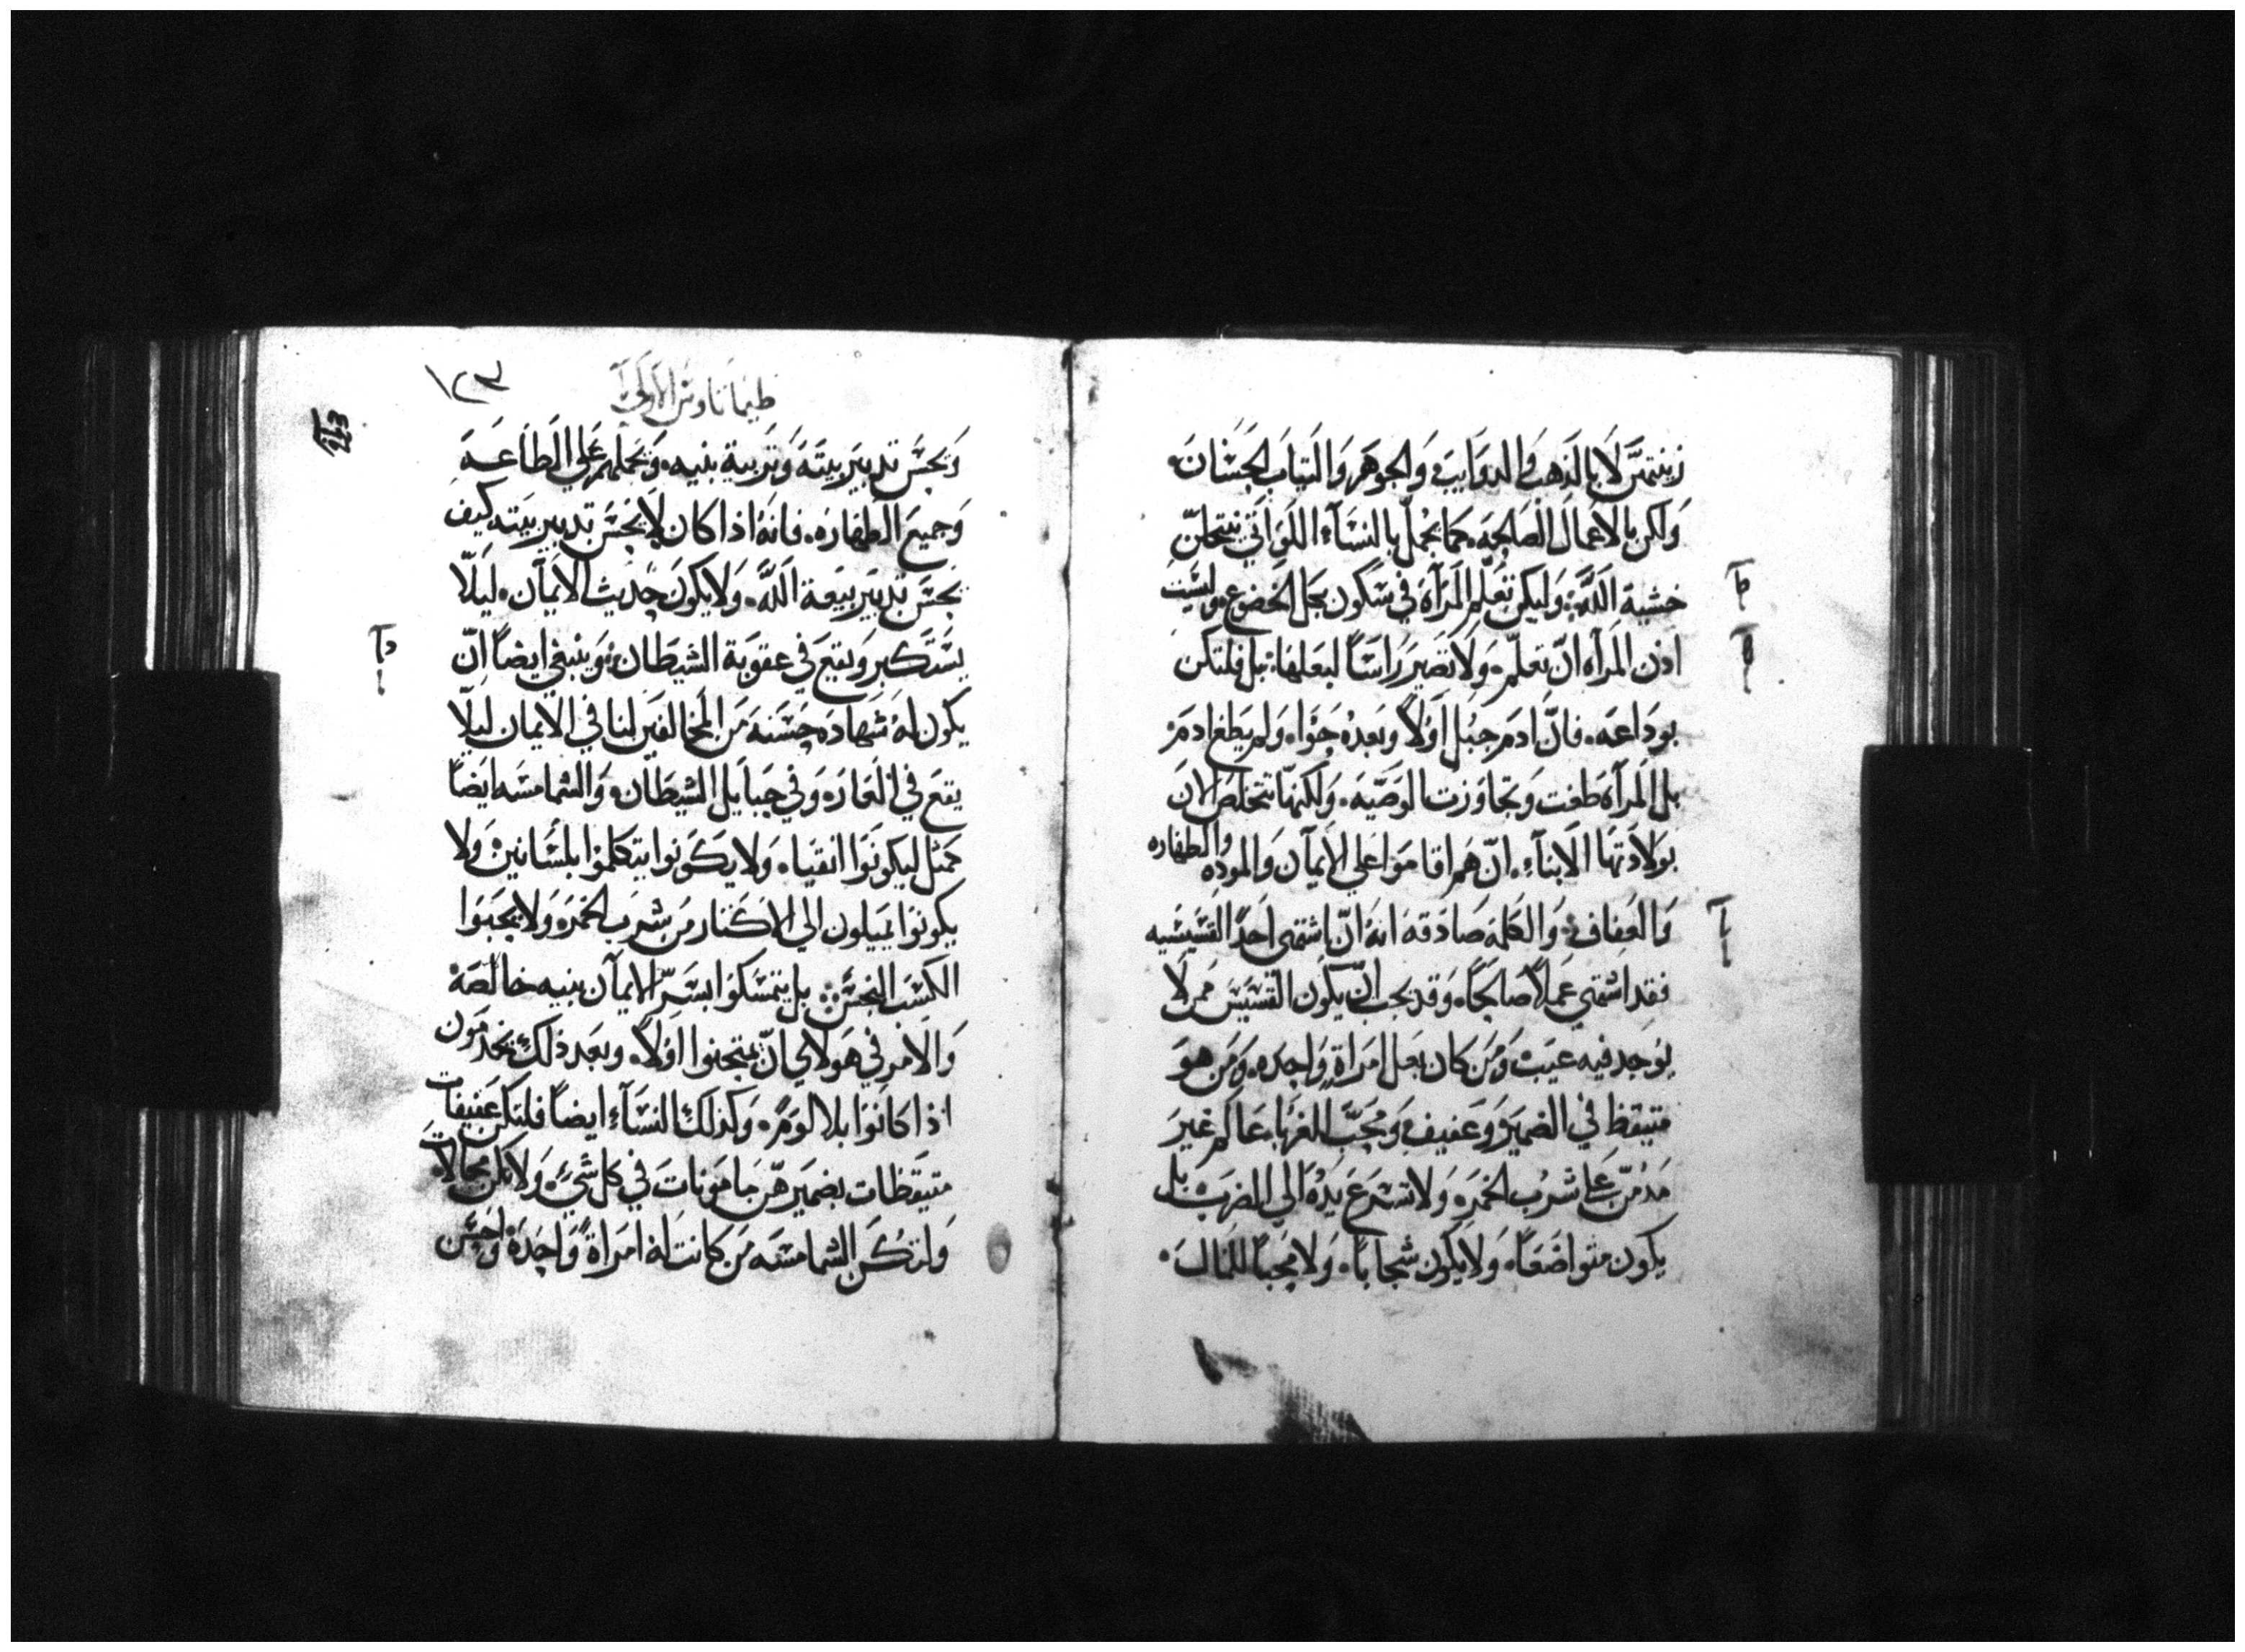 زينتهنّ لا بالذهب والدوايب والجوهر والتياب الحسان.
ولكن بالاعمال الصالحه. كما يجمل بالنسآء اللواتي ينتحلن
خشية الله. وليكن تعلم المرآة في سكون بجل الخضوع. ولست
اذن المرآه ان تعلم. ولا تصير راسًا لبعلها. بل فلتكن
بوداعه. فان ادم جبل اولاً وبعده حوا. ولم يطغ ادم
بل المرآة طغت وتجاوزت الوصيه. ولكنها تتخلص الان
بولادتها الابنآء. ان هم اقاموا علي الايمآن والموده والطهاره
والعفاف. والكلمة صادقة انه ان اشتهى احدًا القسيسيه
فقد اشتهي عملاً صالحًا. وقد يجب ان يكون القسيس ممن لا
يوجد فيه عيب ومن كان بعل امراةٍ واحده. ومن هو
متيقظ في الضمير وعفيف ومحب للغربا. عالم غير
مدمن علي شرب الخمره. ولا تسرع يده الي الضرب بل
يكون متواضعًا. ولا يكون شجابًا. ولا محبًا للمال.
١٢٣
طيماتاوس الاولي
123
ويحسن تدبير بيته وتربية بنيه. ويحملهم علي الطاعه
وجميع الطهاره. فانه اذا كان لا يحسن تدبير بيته كيف
يحسن تدبير بيعة الله. ولا يكون حديث الايمآن. ليلّا
يستكبر ويقع في عقوبة الشيطان. وينبغي ايضًا ان
يكون له شهاده حسنه من المخالفين لنا في الايمان ليلّا
يقع في العاره وفي حبايل الشيطان. والشمامسه ايضًا
كمثل ليكونوا انقياه. ولا يكونوا يتكلموا بلسانين. ولا
يكونوا يميلون الي الاكتتار من شرب الخمره ولا يحبوا
الكسب النجس. بل يتمسكوا بسر الايمآن بنيه خالصه
والامر في هولاي ان يمتحنوا اولاً. وبعد ذلك يخدمون
اذا كانوا بلا لوم. وكذلك النسآء ايضًا فلتكن عفيفات
متيقظات بضميرهن مامونات في كل شي. ولا يكن محالات
ولتكن الشمامسه من كانت له امراةً واحده واحسن